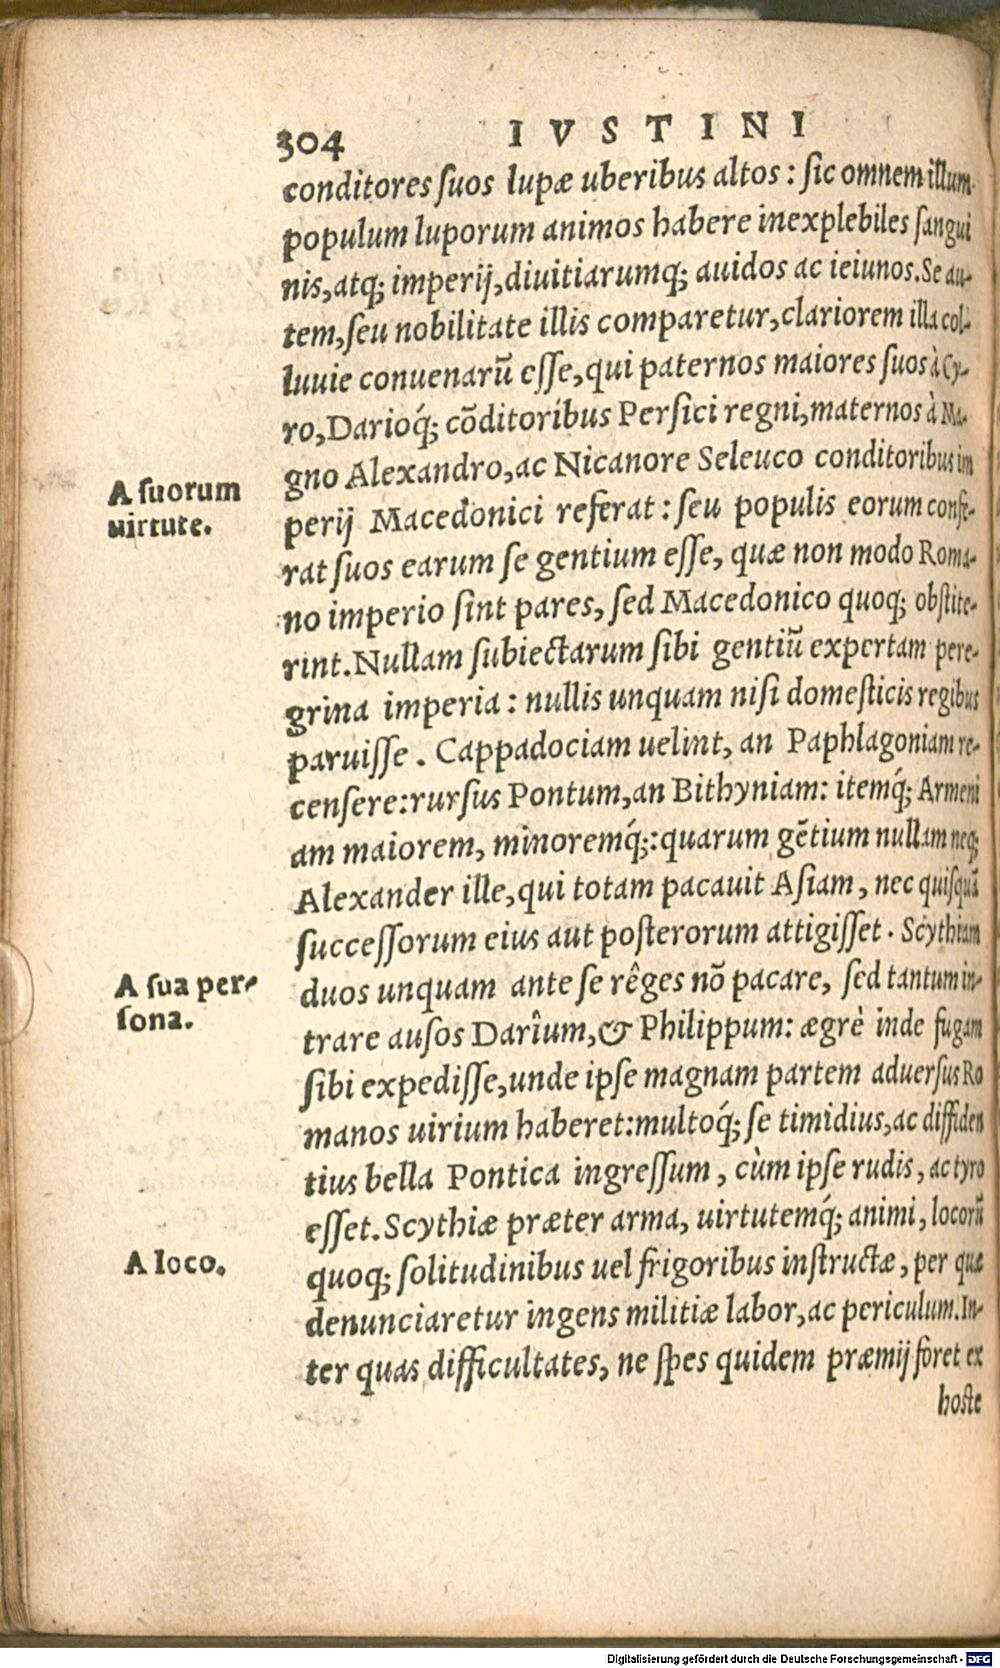 304 IVSTINI
conditores ſuos lupæ uberibus altos: ſic omnem illum
populum luporum animos habere inexplebiles ſangui
nis, atq; imperij, diuitiarumq; auidos ac ieiunos. Se au-
tem, ſeu nobilitate illis comparetur, clariorem illa col-
luuie conuenarū eſſe, qui paternos maiores ſuos à Cy-
ro, Darioq́; cōditoribus Perſici regni, maternos à Ma-
gno Alexandro, ac Nicanore Seleuco conditoribus im
A ſuorum
uirtute.
perij Macedonici referat: ſeu populis eorum confe-
rat ſuos earum ſe gentium eſſe, quæ non modo Roma-
no imperio ſint pares, ſed Macedonico quoq; obſtite-
rint. Nullam ſubiectarum ſibi gentiū expertam pere-
grina imperia: nullis unquam niſi domeſticis regibus
paruiſſe. Cappadociam uelint, an Paphlagoniam re-
cenſere: rurſus Pontum, an Bithyniam: itemq́; Armeni
am maiorem, minoremq́;: quarum gētium nullam neq;
Alexander ille, qui totam pacauit Aſiam, nec quiſquā
ſucceſſorum eius aut poſterorum attigiſſet. Scythiam
A ſua per-
ſona.
duos unquam ante ſe rêges nō pacare, ſed tantum in-
trare auſos Darîum, & Philippum: ægrè inde fugam
ſibi expediſſe, unde ipſe magnam partem aduerſus Ro
manos uirium haberet: multoq́; ſe timidius, ac diffiden
tius bella Pontica ingreſſum, cùm ipſe rudis, ac tyro
eſſet. Scythiæ præter arma, uirtutemq́; animi, locorū
A loco.
quoq; ſolitudinibus uel frigoribus inſtructæ, per quæ
denunciaretur ingens militiæ labor, ac periculum. In-
ter quas difficultates, ne ſpes quidem præmij foret ex
hoſte
Digitalisierung gefördert durch die Deutsche Forschungsgemeinschaft - DFG